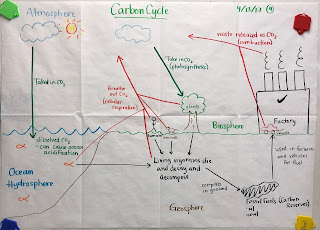 Atmosphere
Carbon Cycle
4/13/17 (4)
waste released as CO₂
(combustion)
Take in CO₂
(photosynthesis)
Taked in CO₂
Breathe
out CO₂
(cellular
respiration)
plants
Factory
Biosphere
dissolved CO₂
- can cause ocean
acidification
Ocean
Hydrosphere
Living organisms die
and decay and
decompose
used in factories
and vehicles
for fuel
compress
in ground
Fossil fuels (Carbon
Reserves)
- oil
- coal
Geosphere